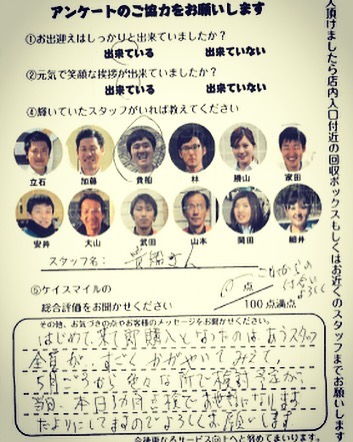 アンケートのご協力をお願いします
①お出迎えはしっかりと出来ていましたか?
出来ている 出来ていない
②元気で笑顔な挨拶が出来ていましたか?
出来ている 出来ていない
④輝いていたスタッフがいれば教えてください
立石 加藤 貴船 林 勝山 家田
安井 大山 武田 山本 岡田 細井
スタッフ名:
⑤ケイスマイルの
総合評価をお聞かせください
点
100点満点
その他、お気づきの点やお客様のメッセージをお聞かせください
はじめて来て即購入となったのは、あうスタッフ
全員が すごく かがやいて みえて,
5月ころから 色々な所で検討
本日
たよりにしてますのでよろしくお願いします
今後更なるサービス向上へと努めてまいります。
入頂けましたら店内入口付近の回収ボックスもしくはお近くのスタッフまでお願いします